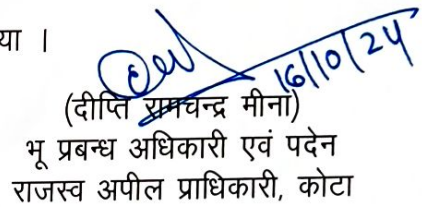 या ।
16/10/24
(दीप्ति रामचन्द्र मीना)
भू प्रबन्ध अधिकारी एवं पदेन
राजस्व अपील प्राधिकारी, कोटा